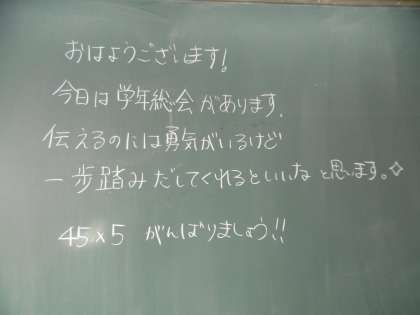 おはようございます!
今日は学年総会があります.
伝えるのには勇気がいるけど
一歩踏みだしてくれるといいなと思います。✧
45×5 がんばりましょう!!